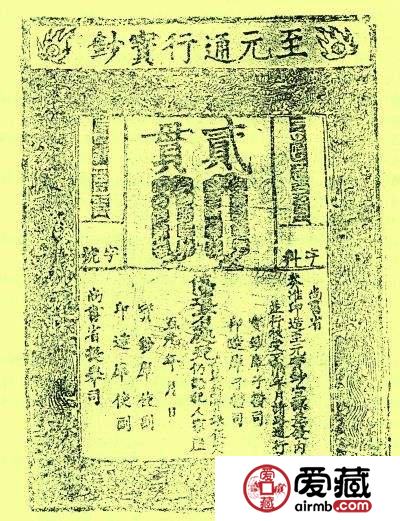 至元通行寳鈔
貳貫
字料
字號
尚書省
奏准印造至元寳鈔宣課差發內
並行收受不限年月諸路通行
寳鈔庫子攢司
印造庫子攢司
偽造者處死
仍給犯人家產
至元 年 月 日
寳鈔庫使副
印造庫使副
尚書省提舉司
爱藏
airmb.com